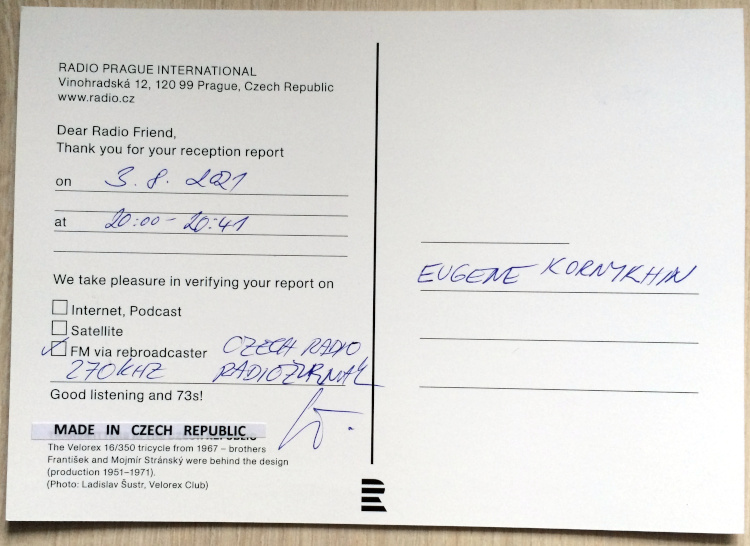 RADIO PRAGUE INTERNATIONAL
Vinohradská 12, 120 99 Prague, Czech Republic
www.radio.cz
Dear Radio Friend,
Thank you for your reception report
on 3. 8. 2021
at 20:00 - 20:41
We take pleasure in verifying your report on
Internet, Podcast
Satellite
FM via rebroadcaster CZECH RADIO
270 KHZ RADIOŽURNÁL
Good listening and 73s!
MADE IN CZECH REPUBLIC
The Velorex 16/350 tricycle from 1967 – brothers
František and Mojmír Stránský were behind the design
(production 1951–1971).
(Photo: Ladislav Šustr, Velorex Club)
EUGENE KORNYKHIN